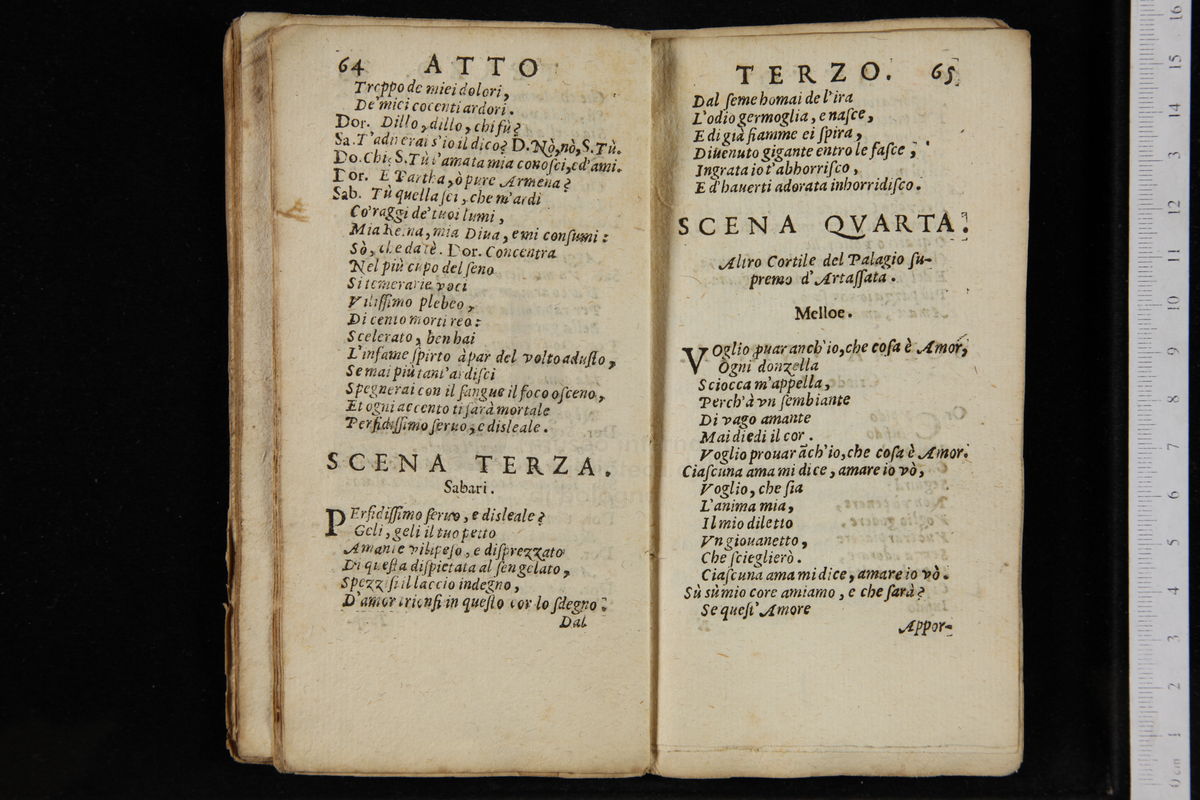 64 ATTO
Troppo de miei dolori,
De' miei cocenti ardori.
Dor. Dillo, dillo, chi fù?
Sa. T'adirerai s'io il dico? D. Nò, nò, S. Tù.
Do. Chi? S. Tù l'amata mia conosci, ed'ami.
Dor. E Partha, ò pure Armena?
Sab. Tù quella sei, che m'ardi
Co' raggi de' tuoi lumi,
Mia Reina, mia Diua, e mi consumi:
Sò, che da tè. Dor. Concentra
Nel più cupo del seno
Si temerarie voci
Vilissimo plebeo,
Di cento morti reo:
Scelerato, ben hai
L'infame spirto à par del volto adusto,
Se mai più tant' ardisci
Spegnerai con il sangue il foco osceno,
Et ogni accento ti sarà mortale
Perfidissimo seruo, e disleale.
SCENA TERZA.
Sabari.
PErfidissimo seruo, e disleale?
Geli, geli il tuo petto
Amante vilipeso, e disprezzato
Di questa dispietata al sen gelato,
Spezzisi il laccio indegno,
D'amor trionfi in questo cor lo sdegno:
Dal
TERZO. 65
Dal seme homai de l'ira
L'odio germoglia, e nasce,
E di già fiamme ei spira,
Diuenuto gigante entro le fasce;
Ingrata io t'abhorrisco,
E d'hauerti adorata inhorridisco.
SCENA QVARTA.
Altro Cortile del Palagio su-
premo d'Artassata.
Melloe.
VOglio puar anch'io, che cosa è Amor,
Ogni donzella
Sciocca m'appella,
Perch'à vn sembiante
Di vago amante
Mai diedi il cor.
Voglio prouar ãch'io, che cosa è Amor.
Ciascuna ama mi dice, amare io vò,
Voglio, che sia
L'anima mia,
Il mio diletto
Vn giouanetto,
Che scieglierò.
Ciascuna ama mi dice, amare io vò.
Sù sù mio core amiamo, e che sarà?
Se quest' Amore
Appor-